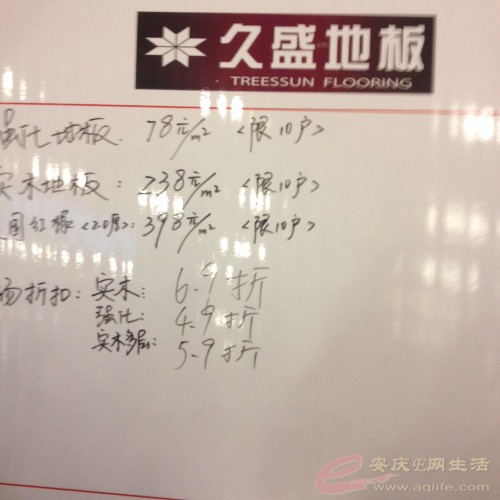 久盛地板
TREESSUN FLOORING
强化地板: 78元/m² <限10户>
实木地板: 238元/m² <限10户>
国红橡<20厚>: 398元/m² <限10户>
场折扣: 实木: 6.9折
强化: 4.9折
实木多层: 5.9折
安庆E网生活
www.aqlife.com